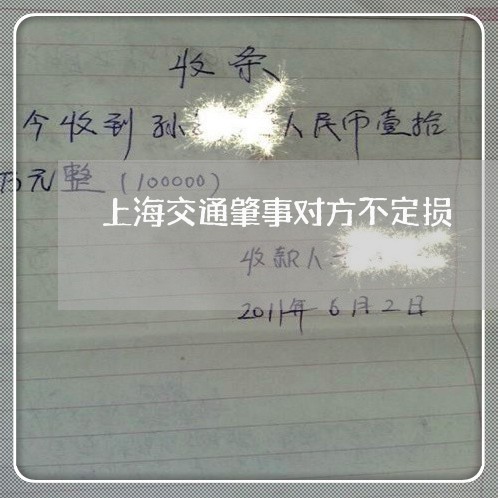 收条
今收到孙 人民币壹拾
万元整（100000）
上海交通肇事对方不定损
收款人
2011年6月2日